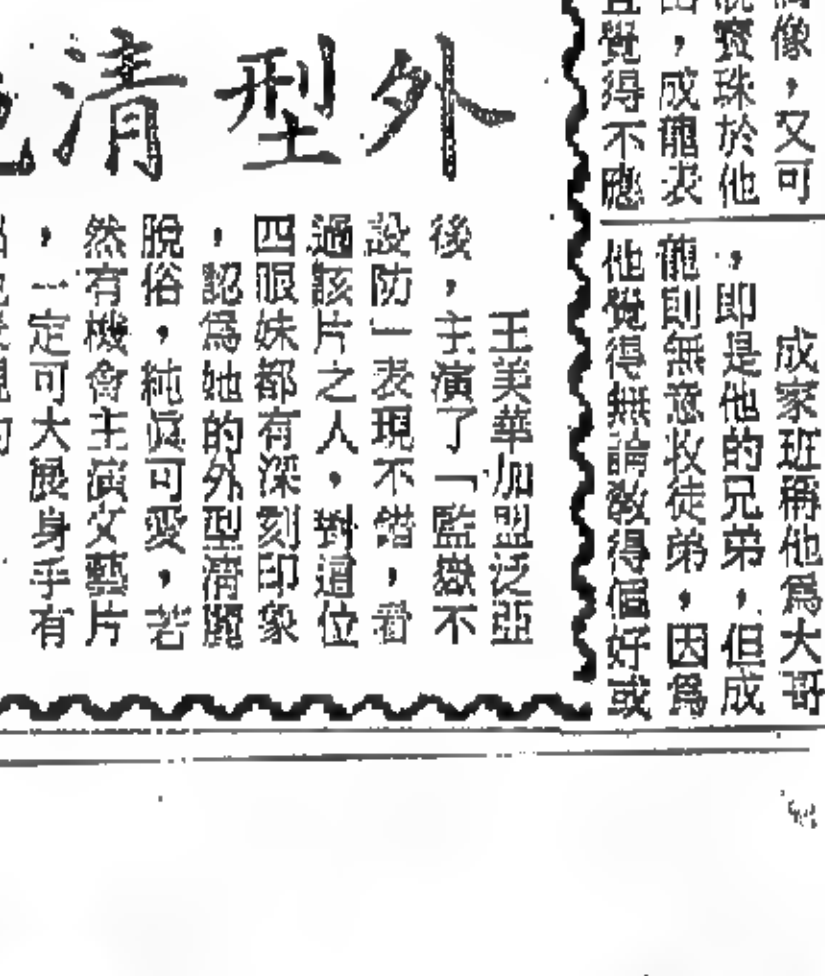 外型清
王美華加盟泛亞
後，主演了「監獄不
設防」表現不錯，看
過該片之人，對這位
四眼妹都有深刻印象
，認爲她的外型清麗
脫俗，純眞可愛，若
然有機會主演文藝片
，一定可大展身手有
像，又可
寶珠於他
，成龍表
覺得不應
成家班稱他爲大哥
，即是他的兄弟，但成
龍則無意收徒弟，因爲
他覺得無論敎得個好或